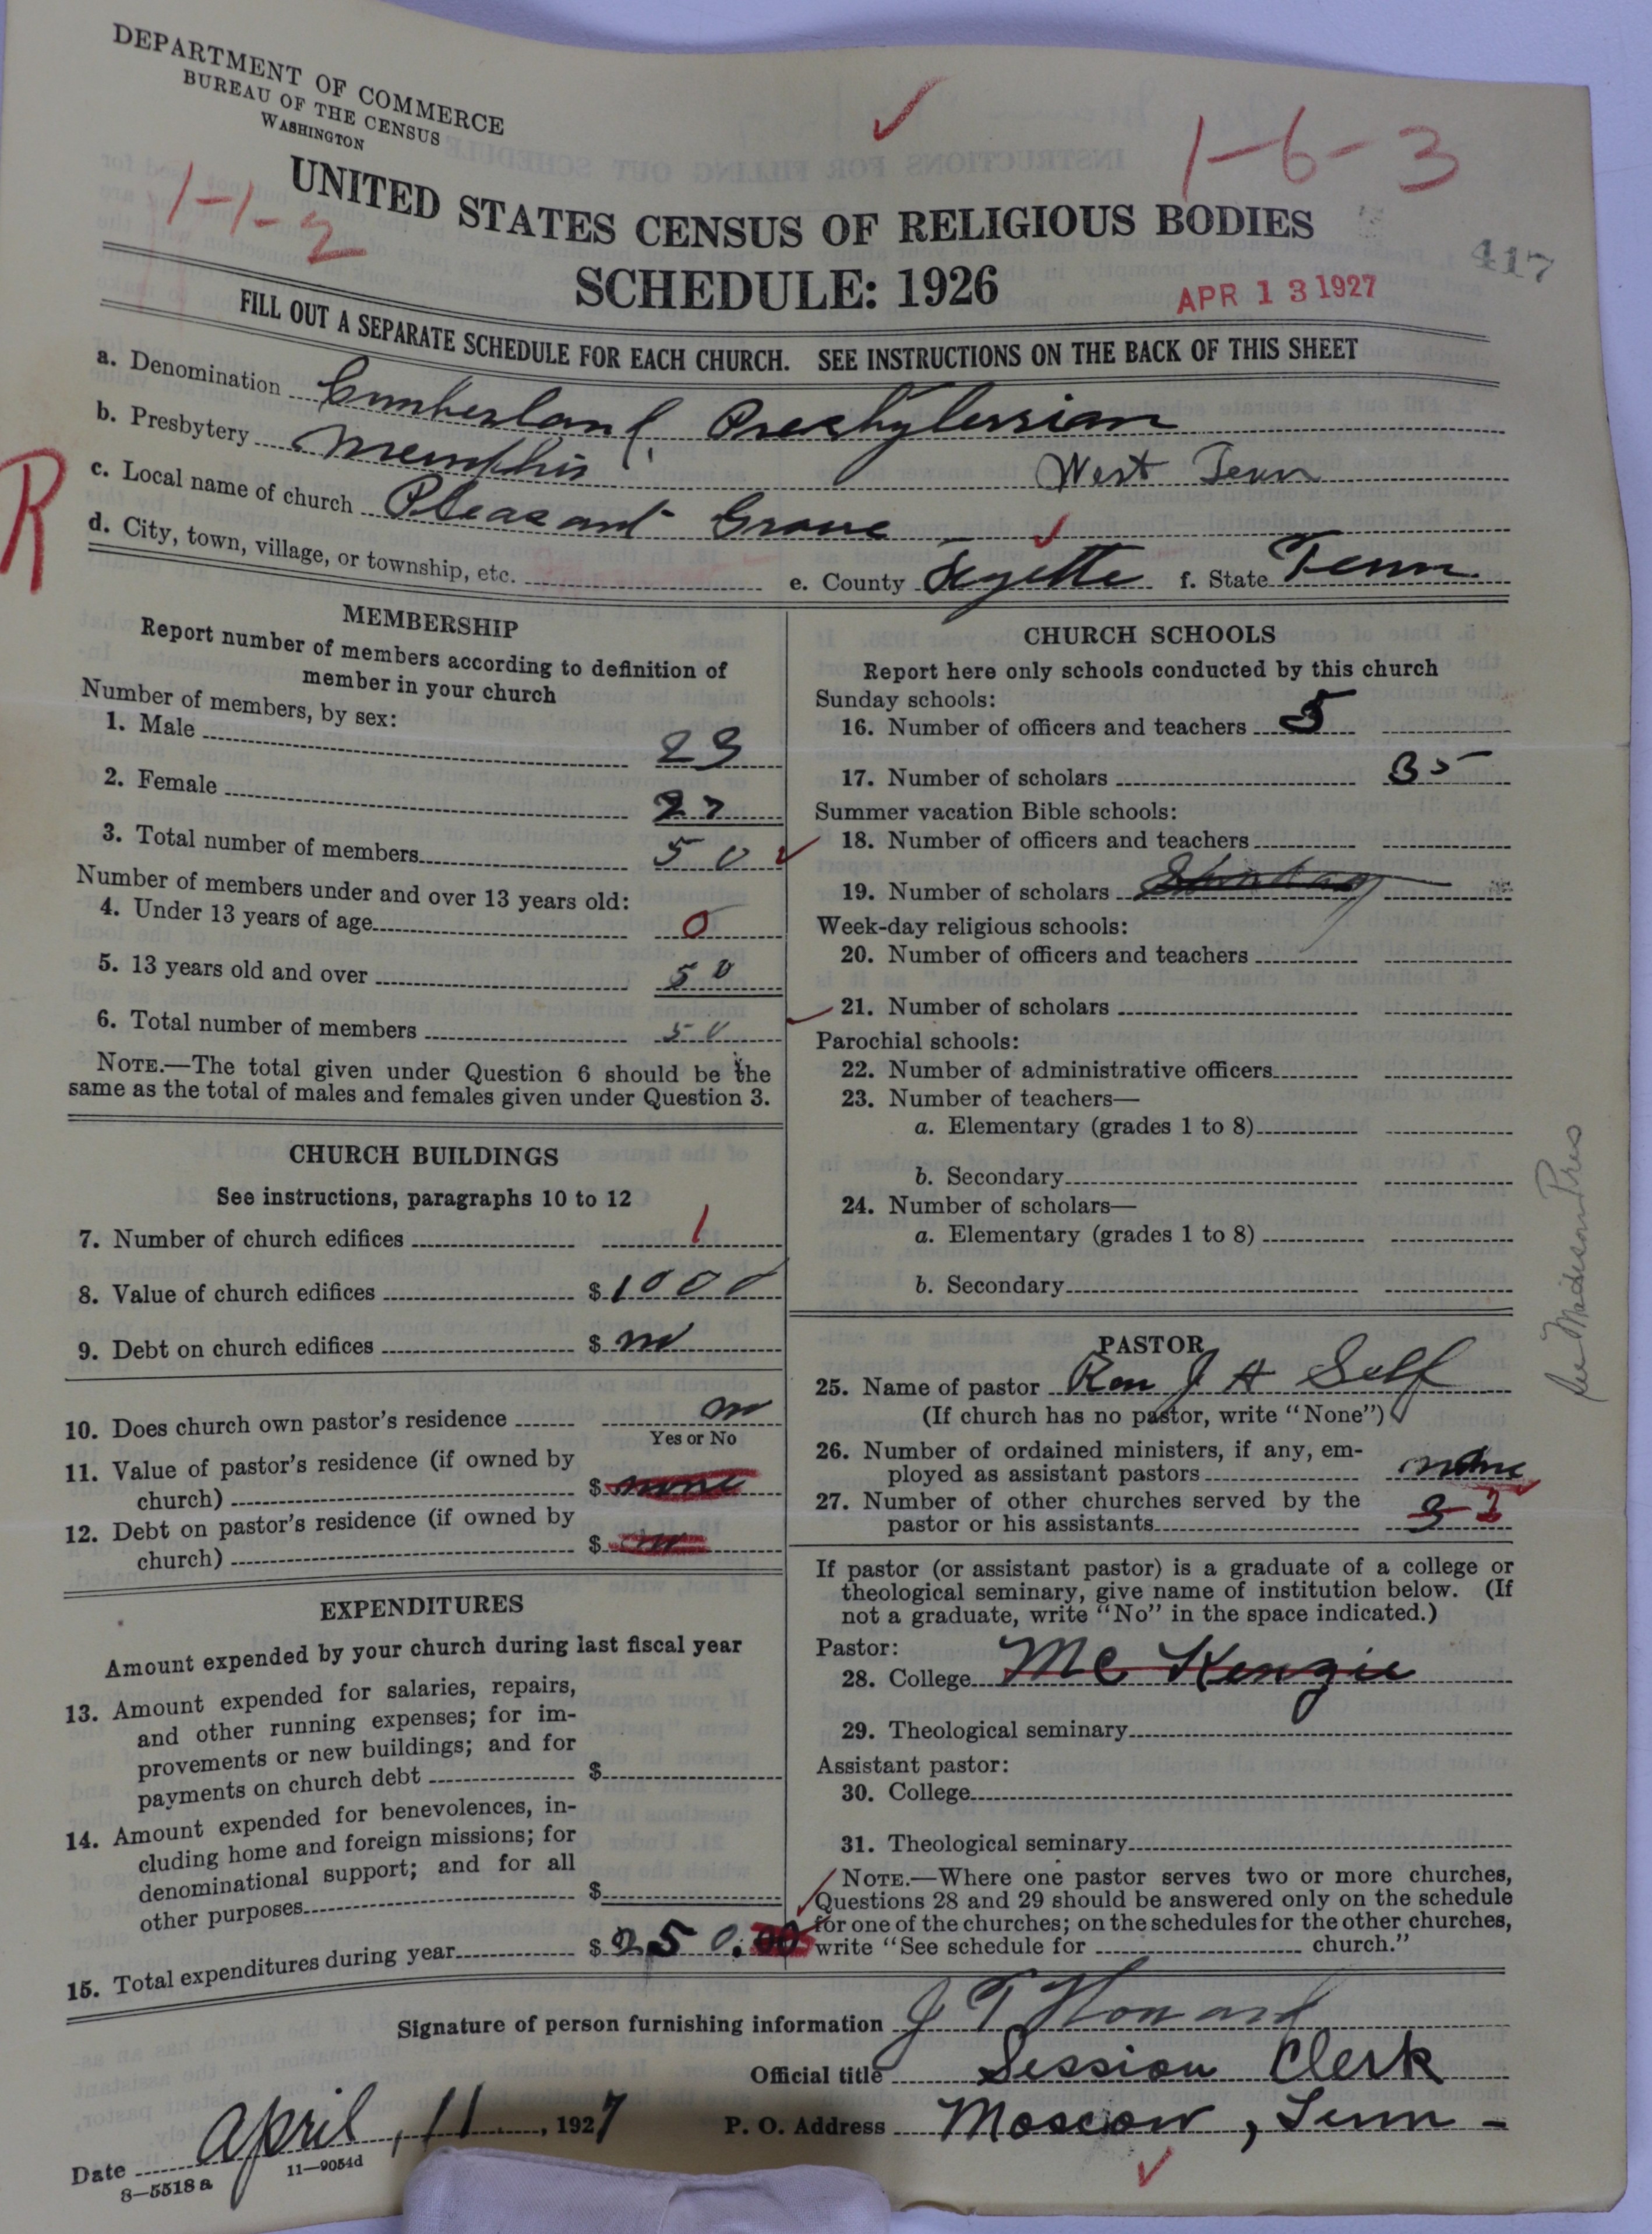 DEPARTMENT OF COMMERCE
BUREAU OF THE CENSUS
WASHINGTON
1-1-2
1-6-3
UNITED STATES CENSUS OF RELIGIOUS BODIES
417
SCHEDULE: 1926
APR 13 1927
FILL OUT A SEPARATE SCHEDULE FOR EACH CHURCH. SEE INSTRUCTIONS ON THE BACK OF THIS SHEET
a. Denomination Cumberland Presbyterian
b. Presbytery Memphis West Tenn
c. Local name of church Pleasant Grove
R
d. City, town, village, or township, etc.
e. County Fayette f. State Tenn
MEMBERSHIP
Report number of members according to definition of
member in your church
Number of members, by sex:
1. Male 23
2. Female 27
3. Total number of members 50
Number of members under and over 13 years old:
4. Under 13 years of age 0
5. 13 years old and over 50
6. Total number of members 50
NOTE.—The total given under Question 6 should be the
same as the total of males and females given under Question 3.
CHURCH BUILDINGS
See instructions, paragraphs 10 to 12
7. Number of church edifices 1
8. Value of church edifices $1000
9. Debt on church edifices $ no
10. Does church own pastor's residence no
Yes or No
11. Value of pastor's residence (if owned by
church) $ none
12. Debt on pastor's residence (if owned by
church) $
EXPENDITURES
Amount expended by your church during last fiscal year
13. Amount expended for salaries, repairs,
and other running expenses; for im-
provements or new buildings; and for
payments on church debt $
14. Amount expended for benevolences, in-
cluding home and foreign missions; for
denominational support; and for all
other purposes $
15. Total expenditures during year $250.00
CHURCH SCHOOLS
Report here only schools conducted by this church
Sunday schools:
16. Number of officers and teachers 5
17. Number of scholars 35
Summer vacation Bible schools:
18. Number of officers and teachers
19. Number of scholars
Week-day religious schools:
20. Number of officers and teachers
21. Number of scholars
Parochial schools:
22. Number of administrative officers
23. Number of teachers—
a. Elementary (grades 1 to 8)
b. Secondary
24. Number of scholars—
a. Elementary (grades 1 to 8)
b. Secondary
PASTOR
25. Name of pastor Rev J H Self
(If church has no pastor, write "None")
26. Number of ordained ministers, if any, em-
ployed as assistant pastors none
27. Number of other churches served by the
pastor or his assistants 3
If pastor (or assistant pastor) is a graduate of a college or
theological seminary, give name of institution below. (If
not a graduate, write "No" in the space indicated.)
Pastor:
28. College Mc Kenzie
29. Theological seminary
Assistant pastor:
30. College
31. Theological seminary
NOTE.—Where one pastor serves two or more churches,
Questions 28 and 29 should be answered only on the schedule
for one of the churches; on the schedules for the other churches,
write "See schedule for church."
Signature of person furnishing information J T Howard
Official title Session Clerk
Date April, 11, 1927 P. O. Address Moscow, Tenn-
8—5518a 11—9054d
See Madison Pres